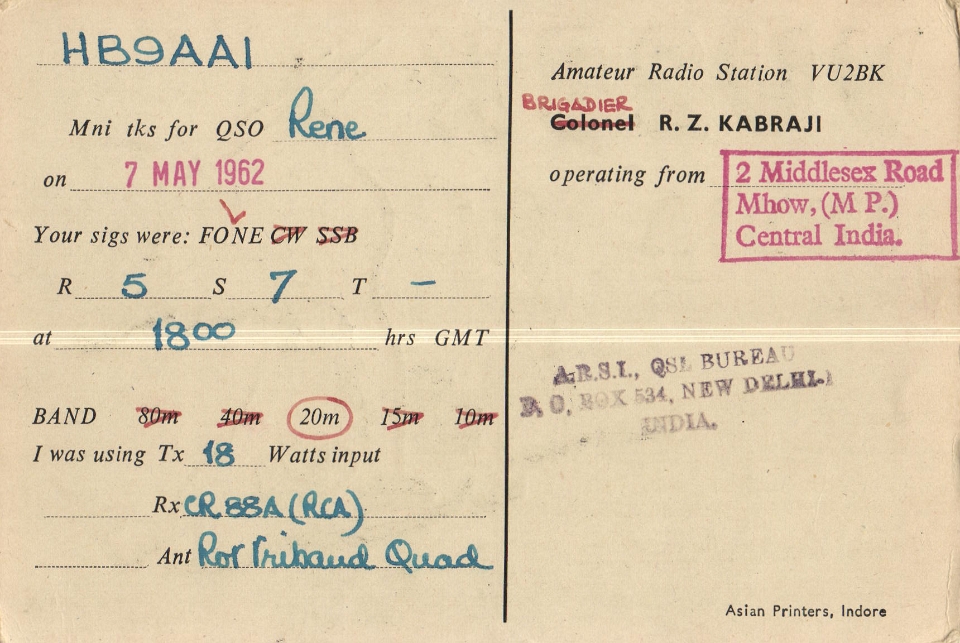 HB9AAI
Mni tks for QSO Rene
on 7 MAY 1962
Your sigs were: FONE CW SSB
R 5 S 7 T –
at 1800 hrs GMT
BAND 80m 40m 20m 15m 10m
I was using Tx 18 Watts input
Rx CR 88A (RCA)
Ant Rot Triband Quad
Amateur Radio Station VU2BK
BRIGADIER
Colonel R. Z. KABRAJI
operating from 2 Middlesex Road
Mhow, (M P.)
Central India.
A.R.S.I., QSL BUREAU
P. O, BOX 534, NEW DELHI.
INDIA.
Asian Printers, Indore